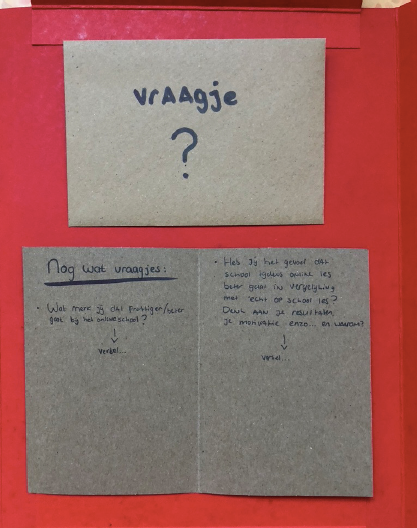 vrAAgje
?
Nog wat vraagjes:
• Wat merk jij dat prettigen/beter
gaat bij het online school?
↓
Vertel...
• Heb jij het gevoel dat
school tijdens online les
beter gaat in vergelijking
met 'echt op school les'?
Denk AAN je resultaten,
je motivatie enzo... en waarom?
↓
Vertel...